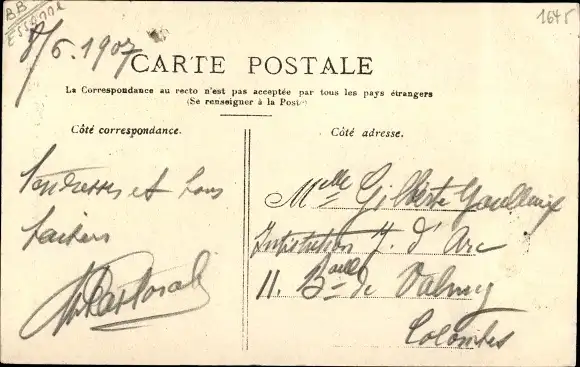 BB
Essonne
1645
8/6.1907
CARTE POSTALE
La Correspondance au recto n'est pas acceptée par tous les pays étrangers
(Se renseigner à la Poste)
Côté correspondance.
Tendresses et bons
baisers
Côté adresse.
Melle Gilberte
Institution J. d'Arc
11. Bould de Valmy
Colombes